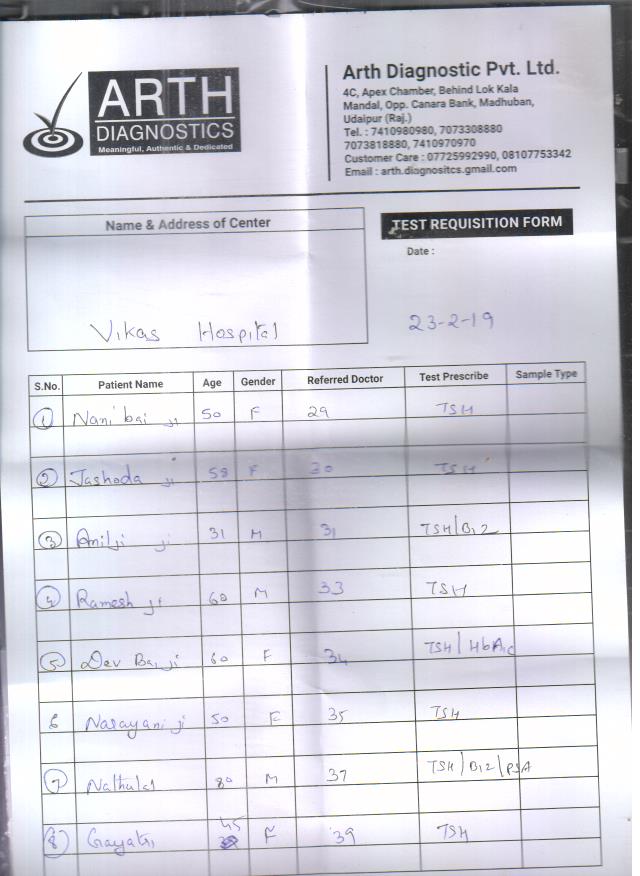 ARTH
DIAGNOSTICS
Meaningful, Authentic & Dedicated
Arth Diagnostic Pvt. Ltd.
4C, Apex Chamber, Behind Lok Kala
Mandal, Opp. Canara Bank, Madhuban,
Udaipur (Raj.)
Tel. : 7410980980, 7073308880
7073818880, 7410970970
Customer Care : 07725992990, 08107753342
Email : arth.diagnositcs.gmail.com
Name & Address of Center
Vikas Hospital
TEST REQUISITION FORM
Date :
23-2-19
S.No. Patient Name Age Gender Referred Doctor Test Prescribe Sample Type
1 Nani bai ji 50 F 29 TSH
2 Jashoda ji 58 F 30 TSH
3 Anilji ji 31 M 31 TSH/B12
4 Ramesh ji 60 M 33 TSH
5 Dev Bai ji 60 F 34 TSH/HbA1c
6 Narayani ji 50 F 35 TSH
7 Nathulal 80 M 37 TSH/B12/PSA
8 Gayatri 45 F 39 TSH